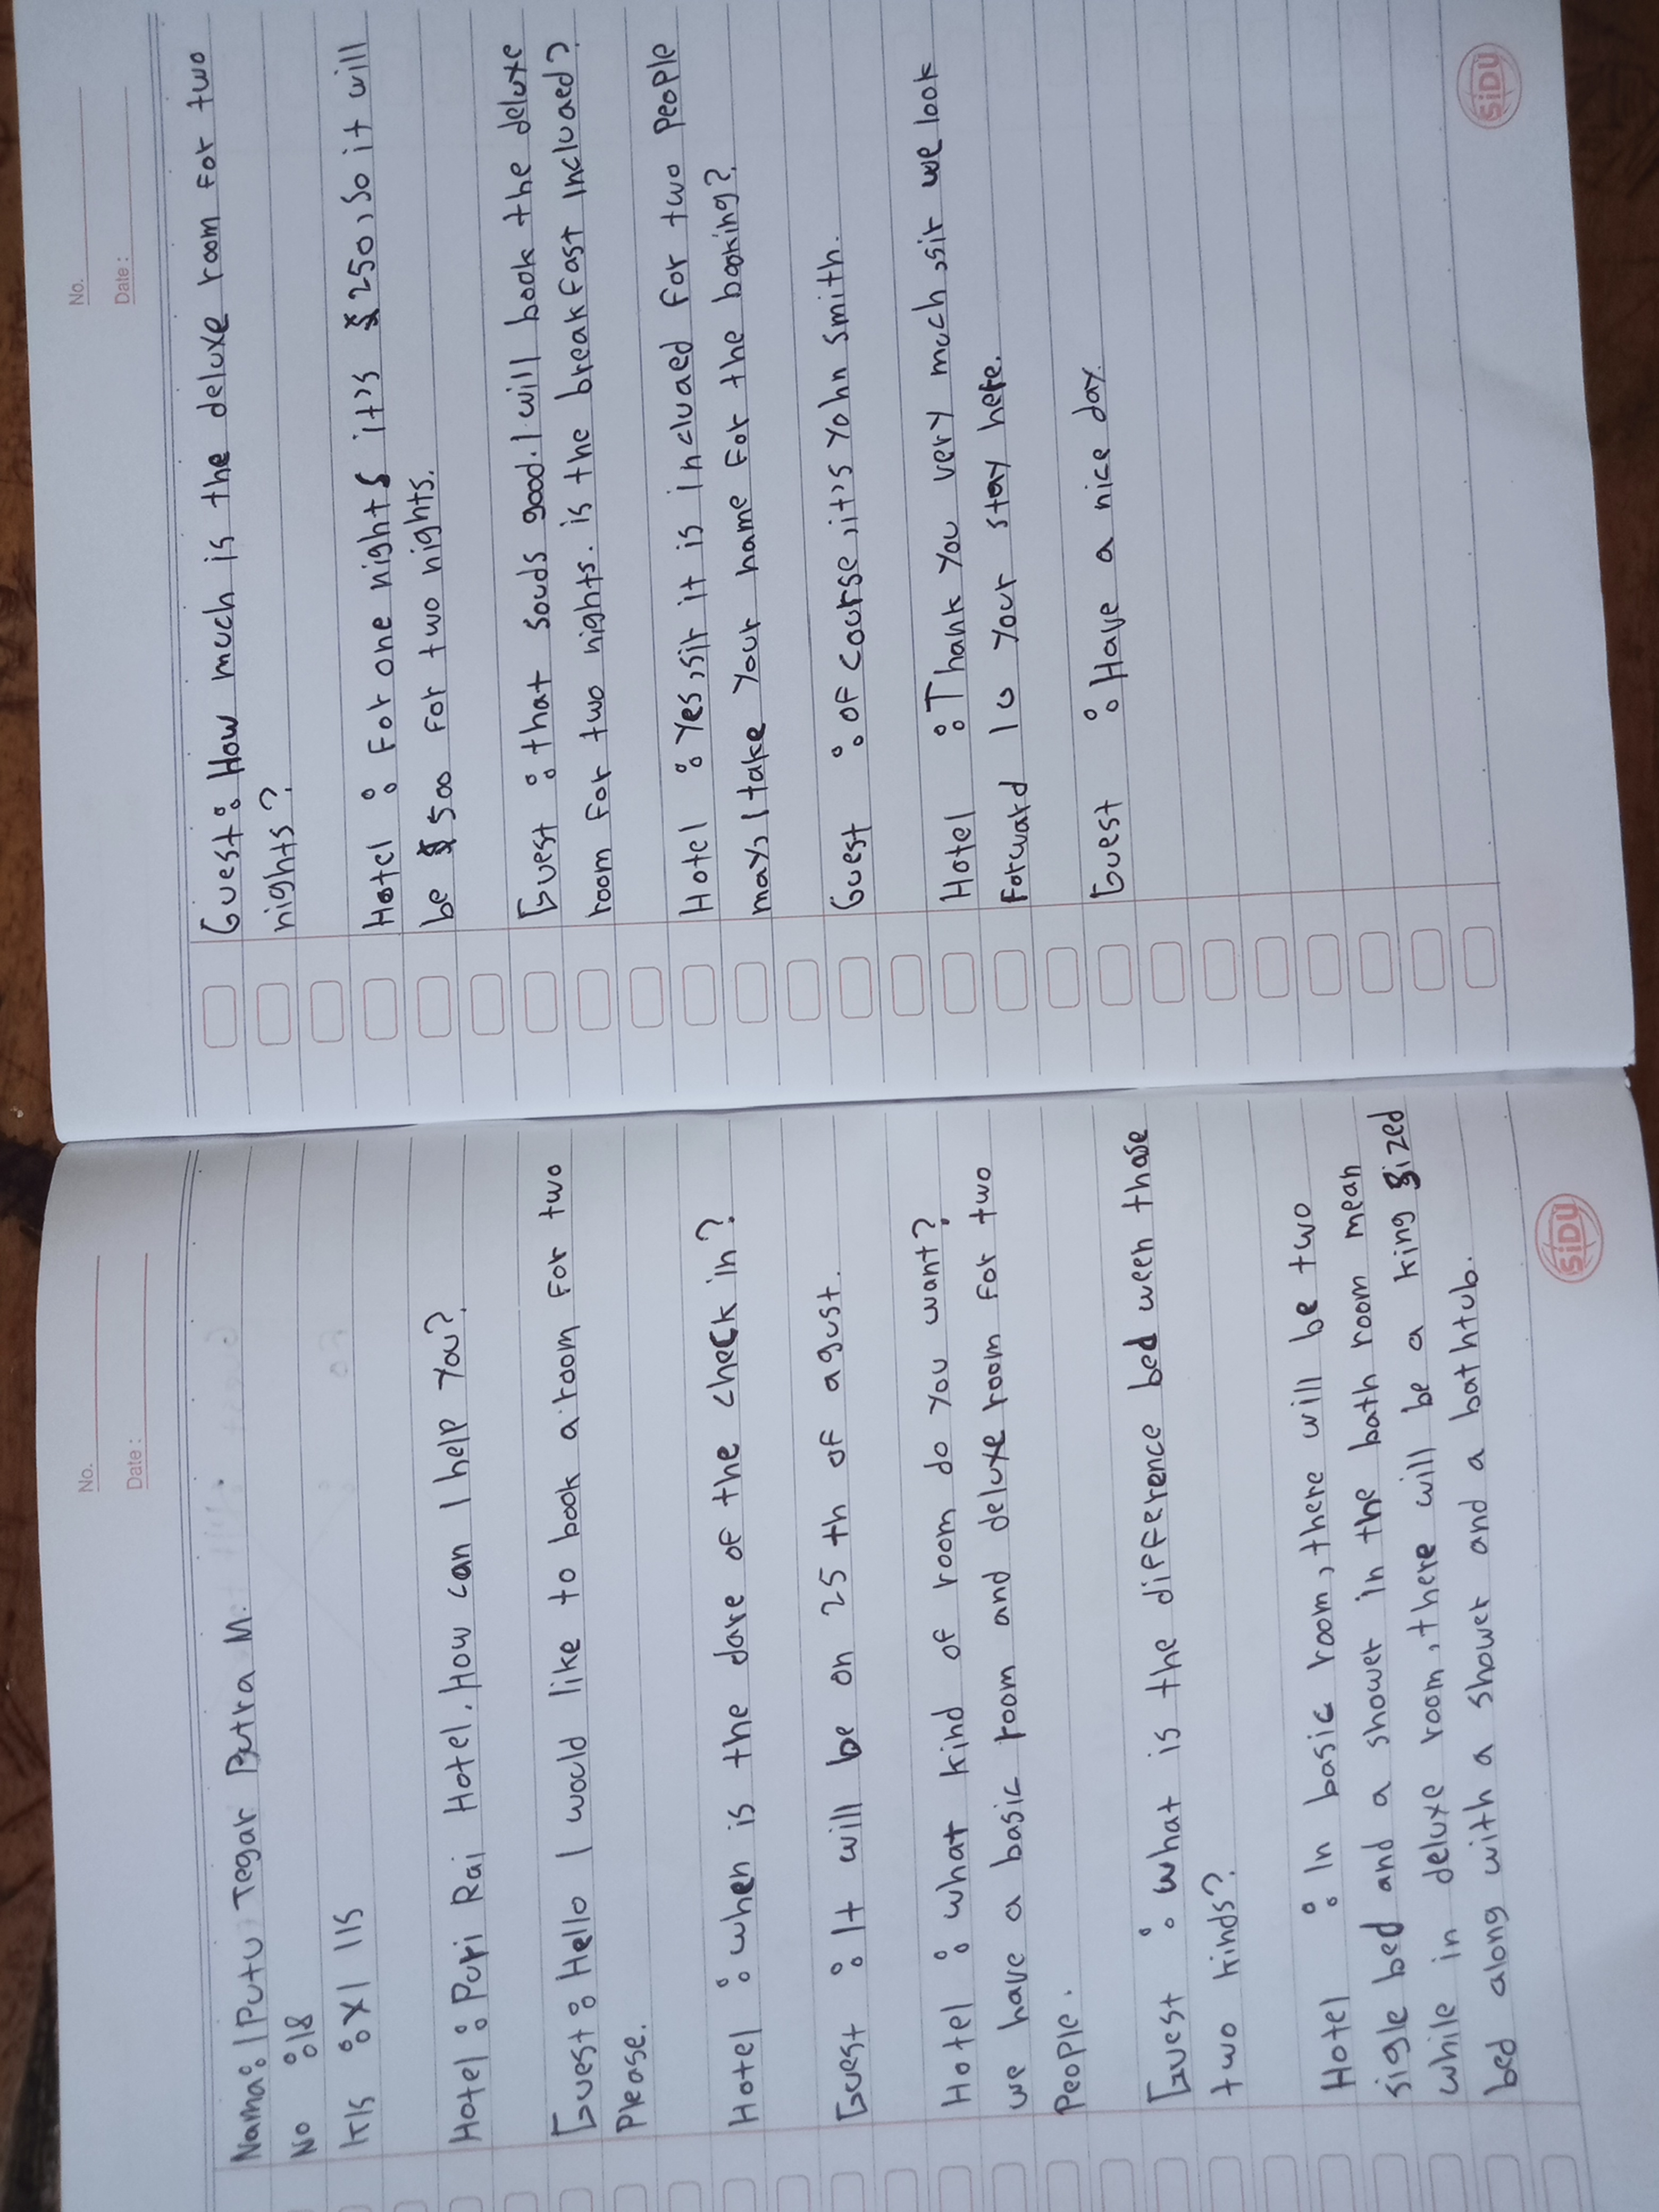 No.
Date :
Nama: I Putu Tegar Putra M.
No : 18
Kls : XI IIS
Hotel : Puri Rai Hotel. How can I help You?
Guest : Hello I would like to book a room for two
Please.
Hotel : when is the dare of the check in?
Guest : It will be on 25 th of agust.
Hotel : what kind of room do you want?
we have a basic room and deluxe room for two
People.
Guest : what is the difference bed ween those
two kinds?
Hotel : In basic room, there will be two
sigle bed and a shower in the bath room mean
while in deluxe room, there will be a king sized
bed along with a shower and a bathtub.
SiDU
No.
Date :
Guest : How much is the deluxe room for two
nights?
Hotel : For one nights it's $250, So it will
be $500 for two nights.
Guest : that souds good. I will book the deluxe
room for two nights. is the breakfast incluaed?
Hotel : Yes, sir it is incluaed for two people
may, I take your name for the booking?
Guest : of course, it's Yohn smith.
Hotel : Thank you very much, sir we look
forward to your stay here.
Guest : Have a nice day.
SiDU